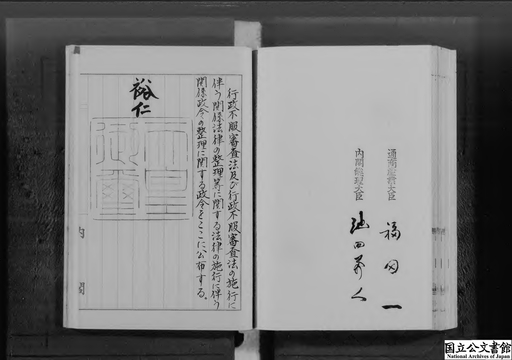 行政不服審査法及び行政不服審査法の施行に
伴う関係法律の整理等に関する法律の施行に伴う
関係政令の整理に関する政令をここに公布する。
裕仁
内閣
通商産業大臣
福田一
内閣総理大臣
池田勇人
国立公文書館
National Archives of Japan